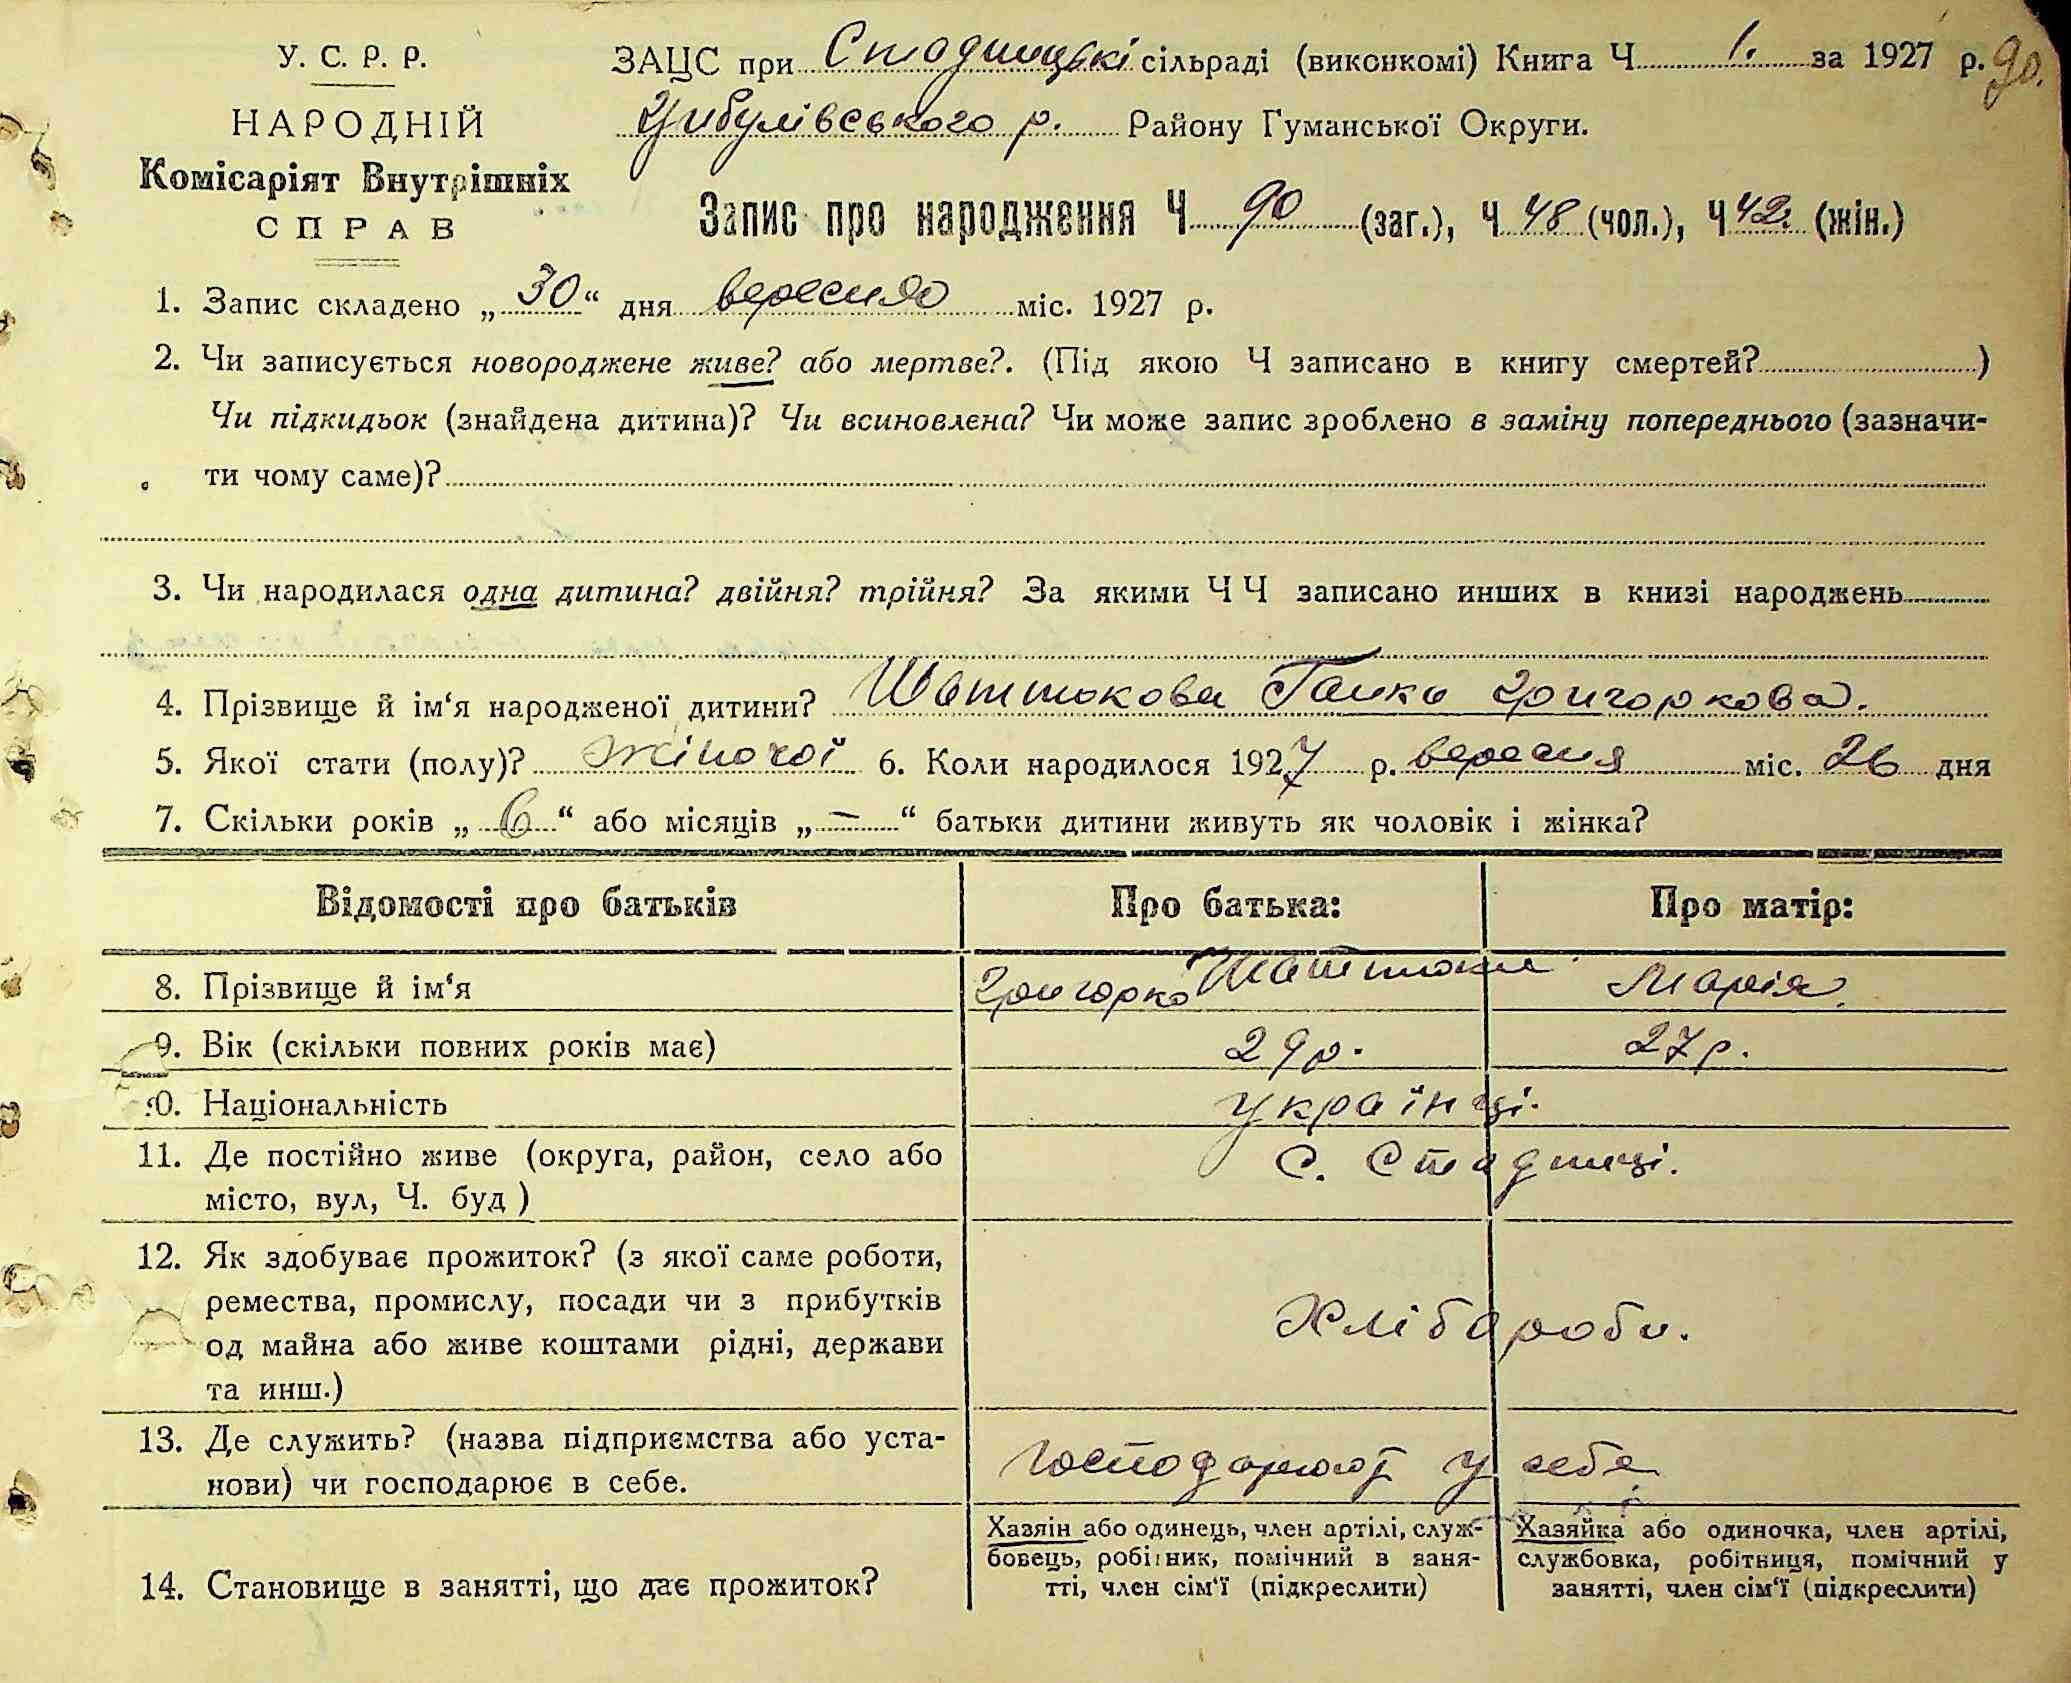 У. С. Р. Р.
НАРОДНІЙ
Комісаріят Внутрішніх
СПРАВ
ЗАЦС при Стадницькі сільраді (виконкомі) Книга Ч 1. за 1927 р. 90.
Цибулівського р. Району Гуманської Округи.
Запис про народження Ч 90 (заг.), Ч 48 (чол.), Ч 42. (жін.)
1. Запис складено „30“ дня вересня міс. 1927 р.
2. Чи записується новороджене живе? або мертве?. (Під якою Ч записано в книгу смертей? )
Чи підкидьок (знайдена дитина)? Чи всиновлена? Чи може запис зроблено в заміну попереднього (зазначи-
ти чому саме)?
3. Чи народилася одна дитина? двійня? трійня? За якими ЧЧ записано инших в книзі народжень
4. Прізвище й ім‘я народженої дитини? Ганна Григоркова.
5. Якої стати (полу)? жіночої 6. Коли народилося 1927 р. вересня міс. 26 дня
7. Скільки років „6“ або місяців „—“ батьки дитини живуть як чоловік і жінка?
Відомості про батьків Про батька: Про матір:
8. Прізвище й ім‘я Григорко Марія.
9. Вік (скільки повних років має) 29р. 27р.
10. Національність українці.
11. Де постійно живе (округа, район, село або
місто, вул, Ч. буд ) С. Стадниці.
12. Як здобуває прожиток? (з якої саме роботи,
ремества, промислу, посади чи з прибутків
од майна або живе коштами рідні, держави
та инш.) Хлібароби.
13. Де служить? (назва підприємства або уста-
нови) чи господарює в себе. господарюют у себе
14. Становище в занятті, що дає прожиток?
Хазяін або одинець, член артілі, служ-
бовець, робітник, помічний в заня-
тті, член сім‘ї (підкреслити)
Хазяйка або одиночка, член артілі,
службовка, робітниця, помічний у
занятті, член сім‘ї (підкреслити)